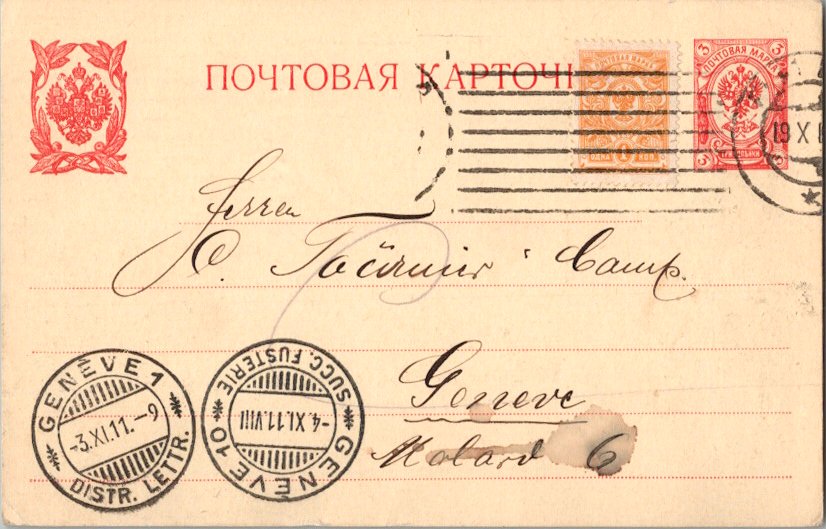 ПОЧТОВАЯ КАРТОЧ
ПОЧТОВАЯ МАРКА
ОДНА 1 КОП.
3 3
ПОЧТОВАЯ МАРКА
3 3
19 X 1
Herren
C. Tournier & Comp.
Geneve
Molard 6
GENÈVE 1
-3.XI.11.-9
DISTR. LETTR.
SUCC. FUSTERIE
-4.XI.11.VIII
GENÈVE 10